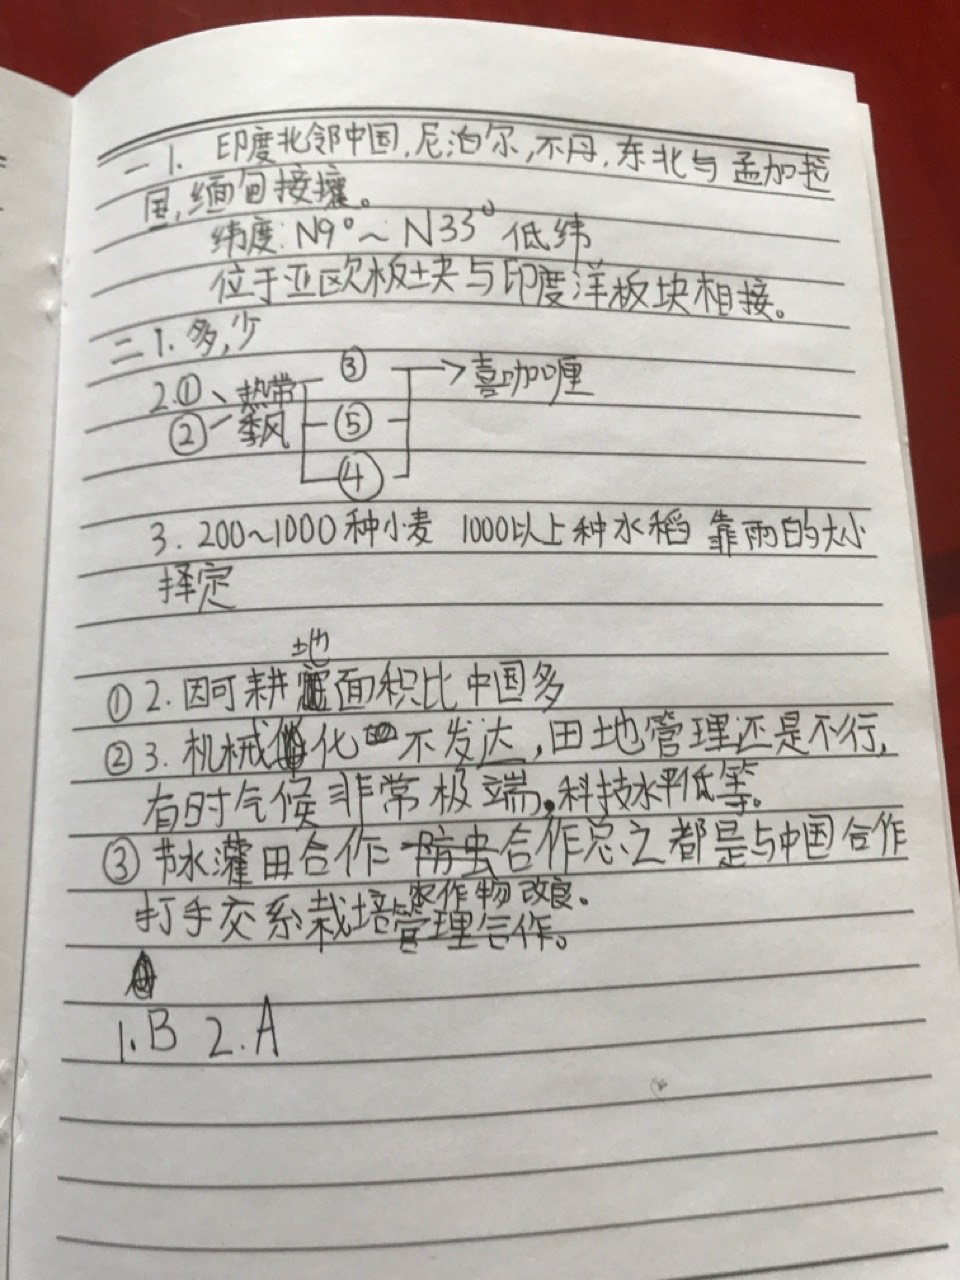 一1. 印度北邻中国,尼泊尔,不丹,东北与孟加拉
国,缅甸接壤。
纬度:N9°~N33° 低纬
位于亚欧板块与印度洋板块相接。
二1.多,少
2.① 热带 ③ →喜咖喱
② 季风 ⑤
④
3. 200~1000种小麦 1000以上种水稻 靠雨的大小
择定
地
①2.因可耕面积比中国多
②3.机械化不发达,田地管理还是不行,
有时气候非常极端,科技水平低等。
③节水灌田合作 防虫合作总之都是与中国合作
农作物改良。
打手交系栽培管理合作。
1.B 2.A